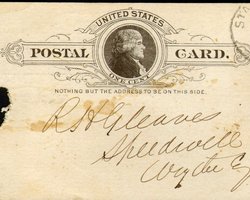 UNITED STATES
POSTAL CARD.
ONE CENT
NOTHING BUT THE ADDRESS TO BE ON THIS SIDE.
R H Gleaves
Speedwell
Wythe Co